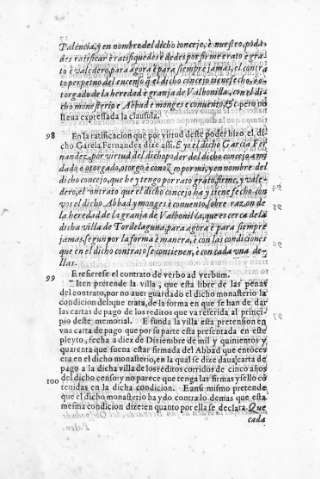 Palencia, y en nombre del dicho concejo, è nuestro, podades
ratificar è ratifiquedes è dedes por firme erato è grato
è valedero, para agora è para siempre jamas, el contrato
perpetuo del encenso q̃ el dicho concejo tiene fecho, è otorgado
de la heredad è granja de Valhonilla, con el dicho
monesterio è Abbad e monges e conuento, &c pero no
lleua expressada la clausula.
98 En la ratificacion que por virtud deste poder hizo el dicho
Garcia Fernandez dize assi. E yo el dicho Garcia Fernandez,
por virtud del dicho poder del dicho concejo a mi
dado e otorgado, otorgo e conozco por mi, y en nombre del
dicho concejo, que he y tengo por rato grato, firme, y valedero,
el contrato que el dicho concejo ha y tiene fecho con
vos el dicho Abbad y monges è conuento, sobre razon de
la heredad de la granja de Valhonilla, que es cerca de la
dicha villa de Tordelaguna, para agora è para siempre
jamas, segun por la forma è manera, è con las condiciones
que en el dicho contrato se contienen, è con cada vna dellas.
99 E refierese el contrato de verbo ad verbum.
Iten pretende la villa, que esta libre de las penas
del contrato, por no auer guardado el dicho monasterio la
condicion del que trata, de la forma en que se han de dar
las cartas de pago de los reditos que va referida al principio
deste memorial. E funda la villa esta pretension en
vna carta de pago que por su parte esta presentada en este
pleyto, fecha a diez de Diziembre de mil y quinientos y
quarenta que suena estar firmada del Abbad que entonces
era en el dicho monasterio, en la qual se dize daua carta de
pago a la dicha villa de los reditos corridos de cinco años
del dicho censo y no parece que tenga las firmas y sello contenidas
100 en la dicha condicion. E ansi mismo pretende
que el dicho monasterio ha ydo contra lo demas que esta
mesma condicion dize en quanto por ella se declara. Que
cada